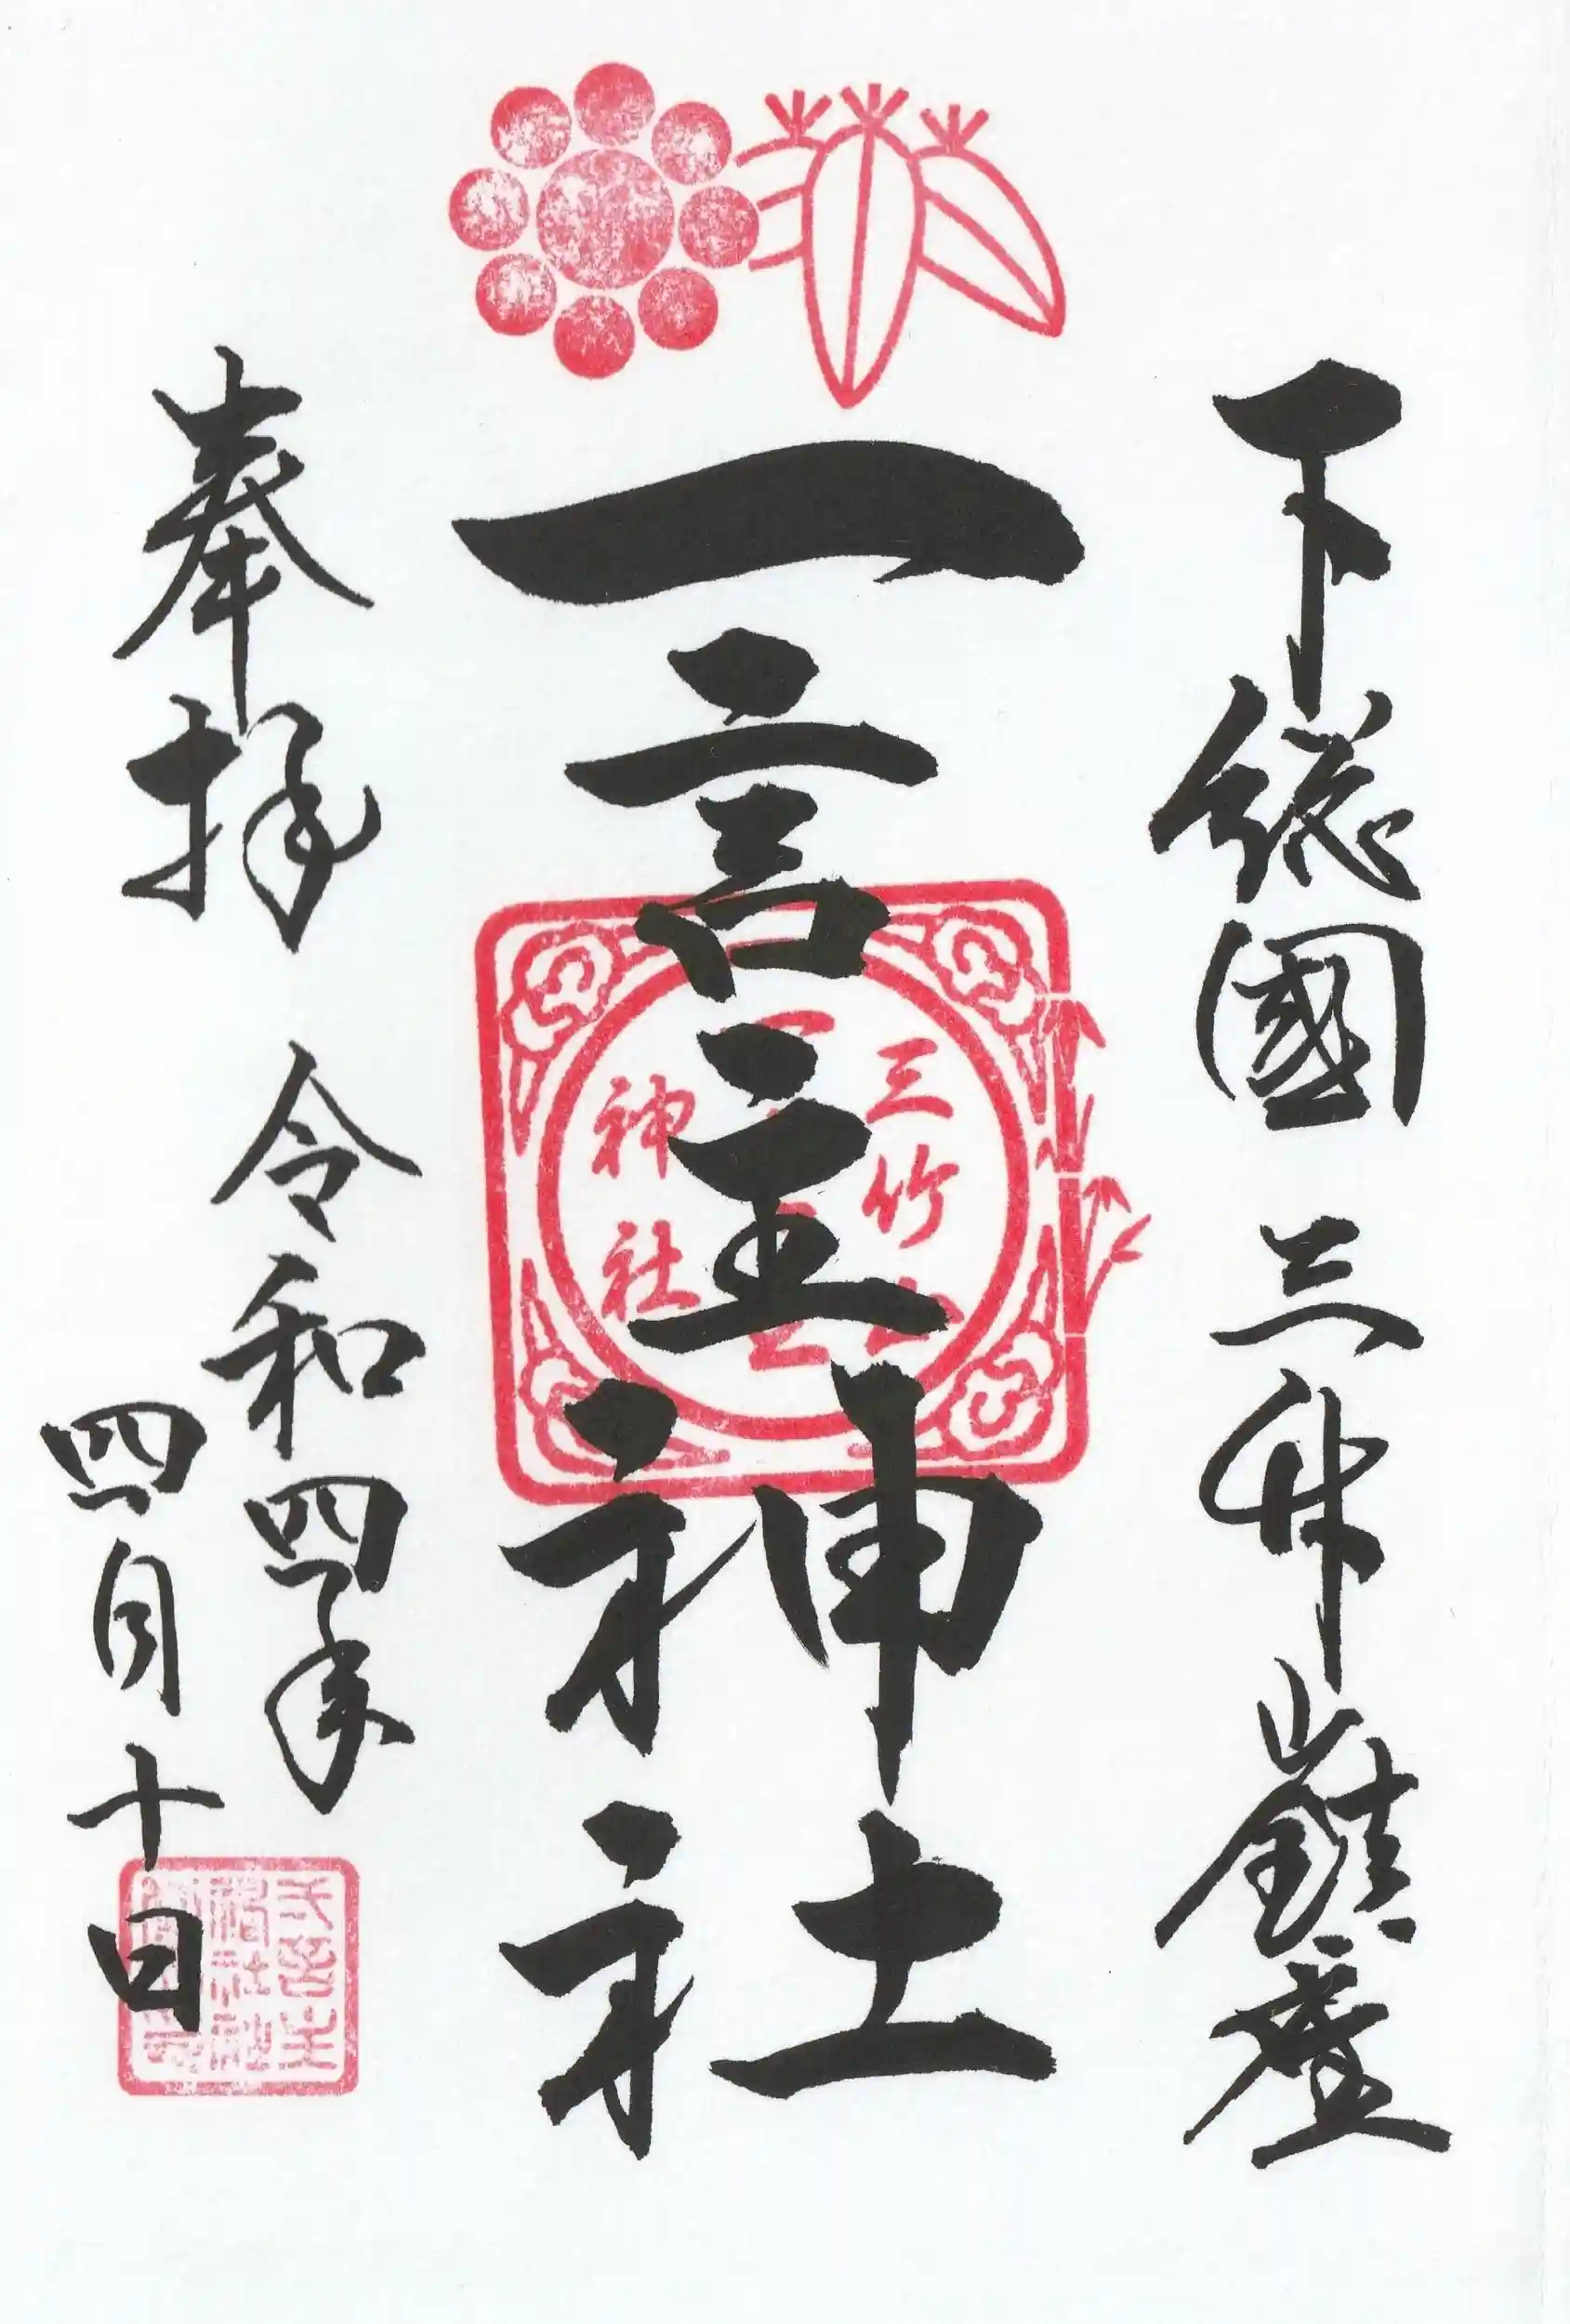 下総國 三竹山鎮座
一言主神社
三竹山
一言主
神社
奉拝 令和四年
四月十日